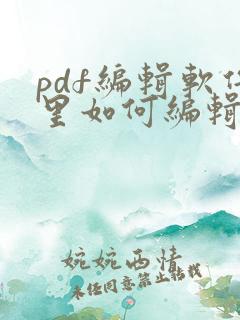 pdf編輯軟件
里如何編輯
婉婉西情
未经同意禁止转载